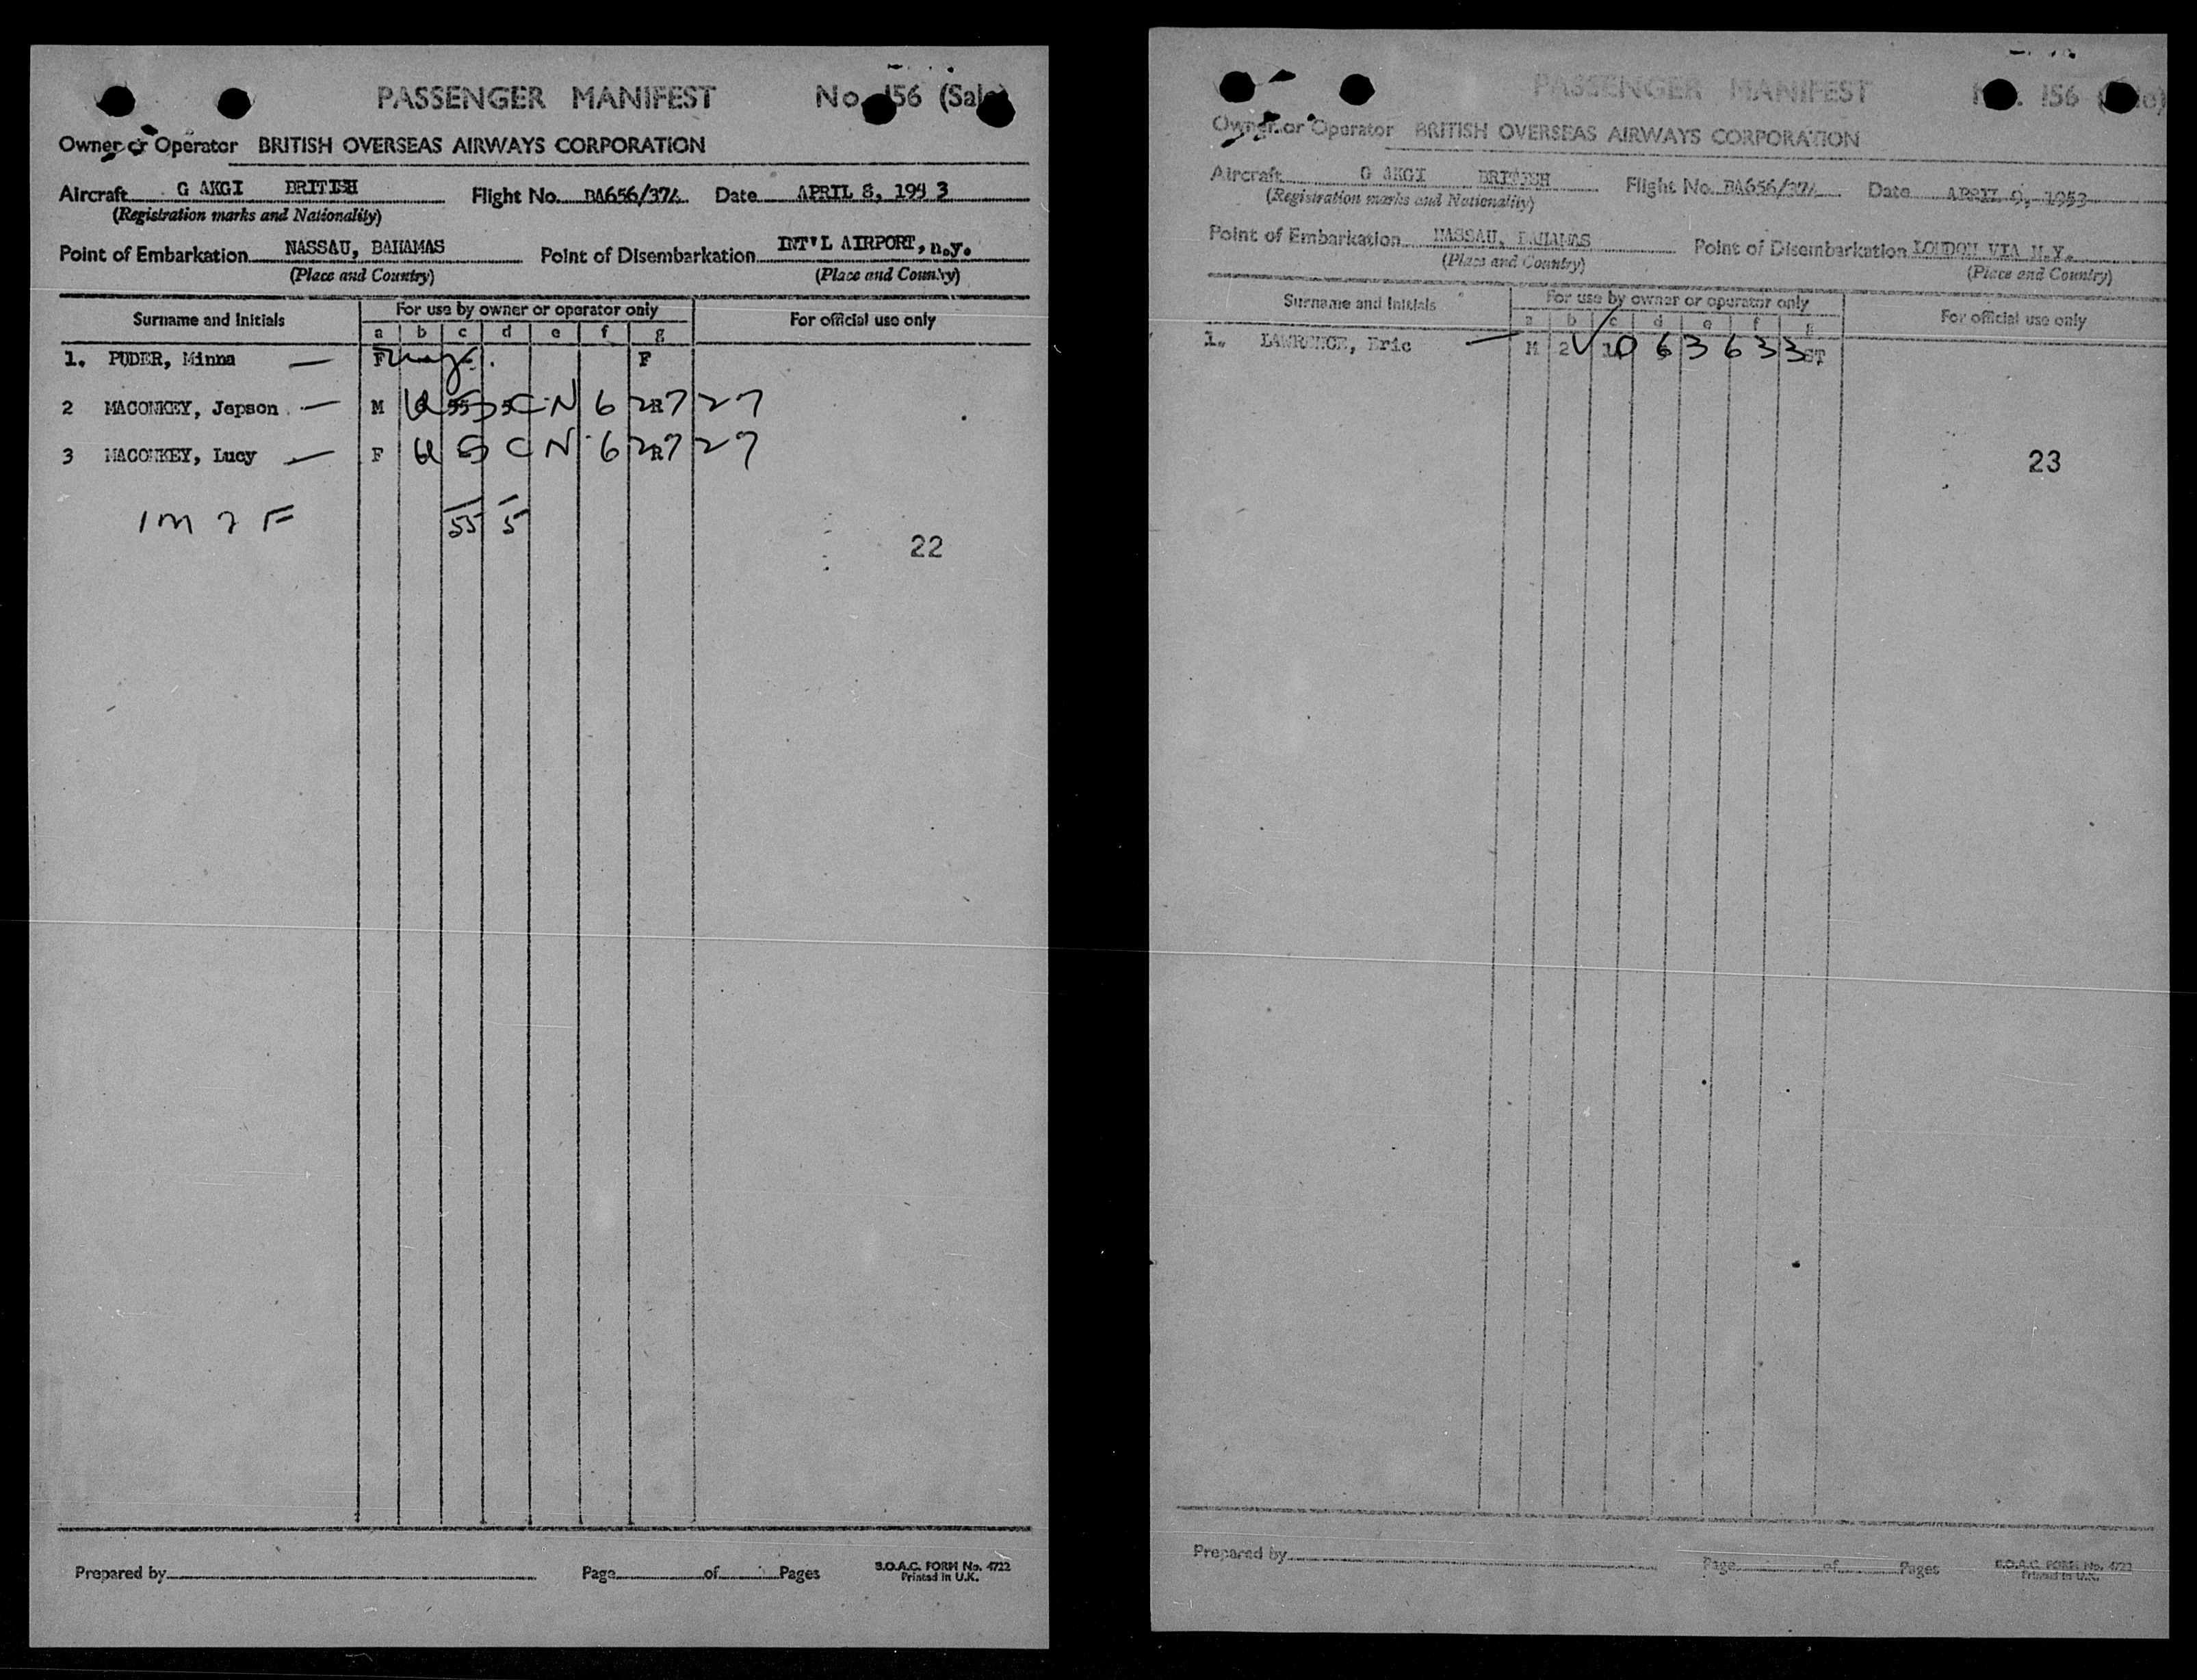 PASSENGER MANIFEST No. 156 (Sale)
Owner or Operator BRITISH OVERSEAS AIRWAYS CORPORATION
Aircraft G AKGI BRITISH Flight No. BA656/374 Date APRIL 8, 1953
(Registration marks and Nationality)
Point of Embarkation NASSAU, BAHAMAS Point of Disembarkation INT'L AIRPORT, n.y.
(Place and Country) (Place and Country)
Surname and Initials For use by owner or operator only For official use only
a b c d e f g
1. PUDER, Minna — F F
2 MACONKEY, Jepson — M 55 5 USCN 6 27 27
3 MACONKEY, Lucy — F USCN 6 27 27
1M 2 F 55 5
22
Prepared by Page of Pages B.O.A.C. FORM No. 4722
Printed in U.K.
PASSENGER MANIFEST No. 156 (Sale)
Owner or Operator BRITISH OVERSEAS AIRWAYS CORPORATION
Aircraft G AKGI BRITISH Flight No. BA656/374 Date APRIL 9, 1953
(Registration marks and Nationality)
Point of Embarkation NASSAU, BAHAMAS Point of Disembarkation LONDON VIA N.Y.
(Place and Country) (Place and Country)
Surname and Initials For use by owner or operator only For official use only
a b c d e f g
1. LAWRENCE, Eric — M 2 0 6 3 6 3 3 ST
23
Prepared by Page of Pages B.O.A.C. FORM No. 4722
Printed in U.K.